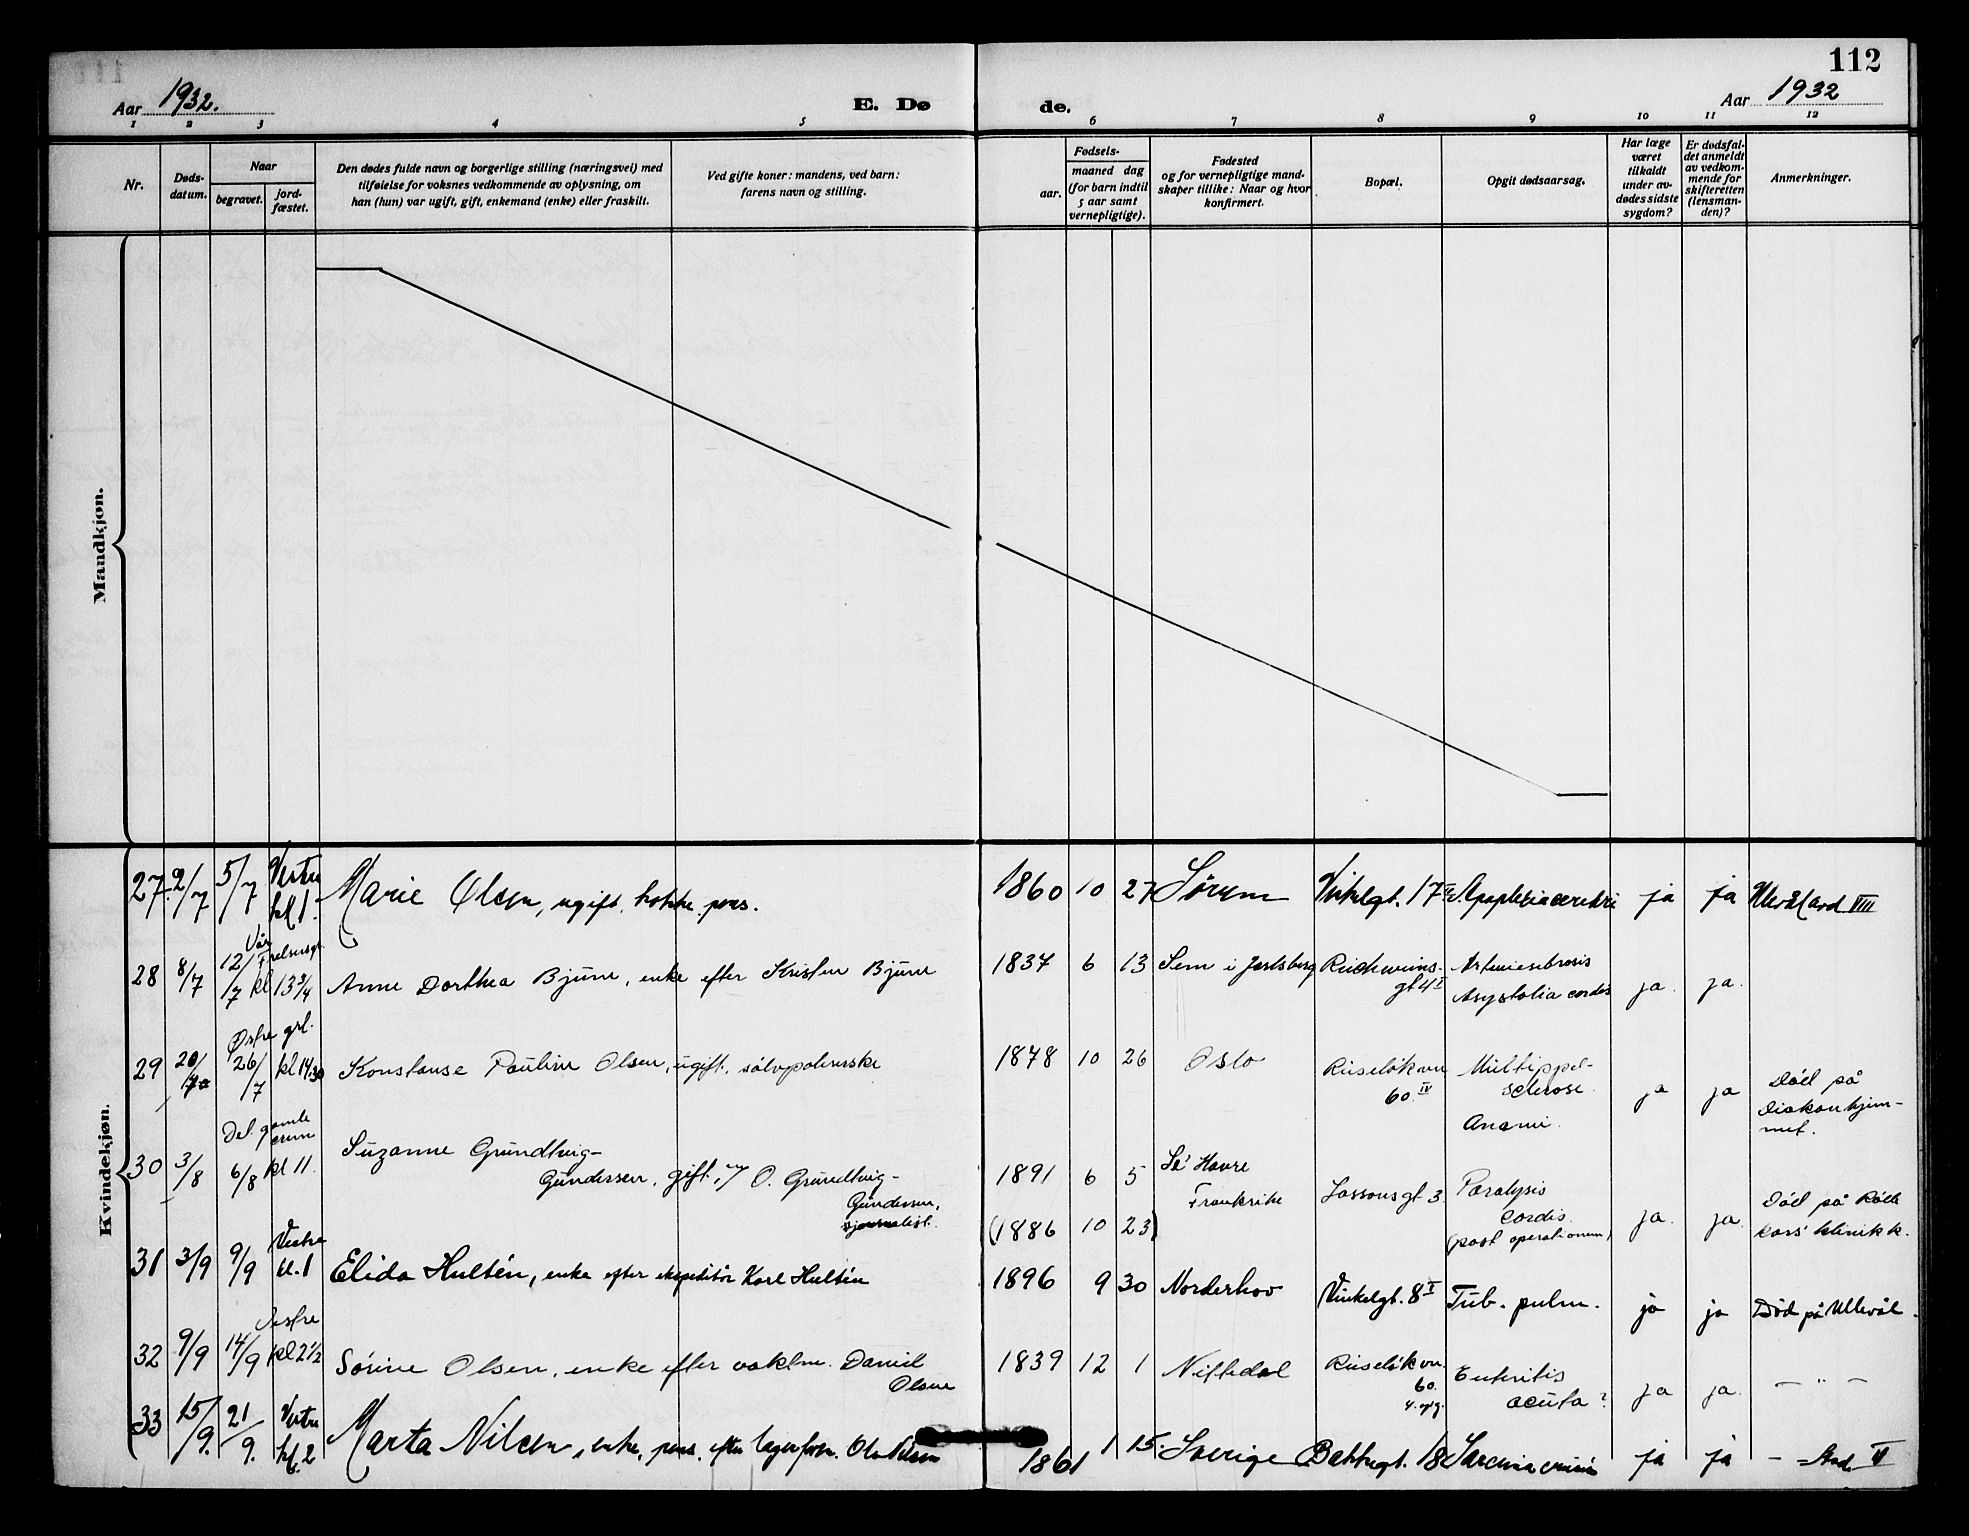 112
Aar 1932.
E. Dø
de.
Aar 1932
1 2 3 4 5 6 7 8 9 10 11 12
Nr.
Døds-
datum.
Naar
begravet.
jord-
fæstet.
Den dødes fulde navn og borgerlige stilling (næringsvei) med
tilføielse for voksnes vedkommende av oplysning, om
han (hun) var ugift, gift, enkemand (enke) eller fraskilt.
Ved gifte koner: mandens, ved barn:
farens navn og stilling.
Fødsels-
aar.
maaned dag
(for barn indtil
5 aar samt
vernepligtige).
Fødested
og for vernepligtige mand-
skaper tillike: Naar og hvor
konfirmert.
Bopæl.
Opgit dødsaarsag.
Har læge
været
tilkaldt
under av-
dødes sidste
sygdom?
Er dødsfal-
det anmeldt
av vedkom-
mende for
skifteretten
(lensman-
den)?
Anmerkninger.
Mandkjøn.
Kvindekjøn.
27. 2/7 5/7 Vestre kl 1. Marie Olsen, ugift, kokke, pens. 1860 10 27 Sørum Vinkelgt. 17 Apoplexia cerebri ja ja Ullevål avd VIII
28 8/7 12/7 Vår Frelsersgr. kl 13 3/4 Anne Dorthea Bjune, enke efter Kristen Bjune 1837 6 13 Sem i Jarlsberg gt 4 I Asystolia cordis ja. ja.
29 20/7 26/7 Østre grl. kl 14.30 Konstanse Pauline Olsen, ugift, sølvpolererske 1878 10 26 Oslo Ruseløkvn 60. IV Multippel-
sclerose.
Anami. ja ja Död på
Diakonhjem-
met.
30 3/8 6/8 Det gamle crem kl 11. Suzanne Grundtvig-
Gundersen, gift m/ O. Grundtvig-
Gundersen,
journalist. 1891 6 5 Le Havre
Frankrike Lassons gt 3 Paralysis
cordis
(post operationem) ja. ja. Död på Röde
kors' klinikk.
(1886 10 23)
31 3/9 9/9 Vestre kl. 1 Elida Hultén, enke efter ekspeditør Karl Hultén 1896 9 30 Norderhov Vinkelgt. 8 I Tub. pulm. ja ja Död på Ullevål.
32 9/9 14/9 Vestre kl 2 1/2 Sörine Olsen, enke efter vaktm. Daniel
Olsen 1839 12 1 Nittedal Ruseløkvn.
60.
4. opg. Enteritis
acuta? ja ja. — " —
33 15/9. 21/9. Vestre kl. 2 Marta Nilsen, enke, pens. efter lagerform. Ole Nilsen 1861 1 15. Sverige Bakkegt. 18 ja ja — " — Avd. V